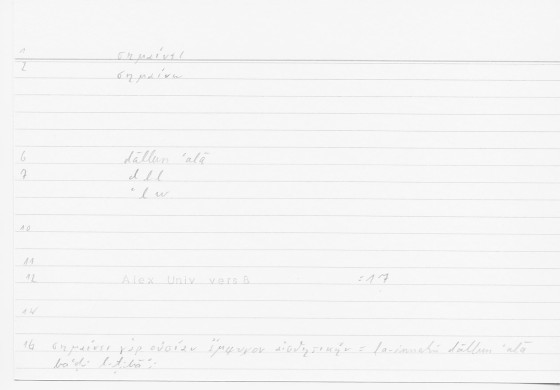 1 σημαίνει
2 σημαίνω
6 dāllun ʿalā
7 d l l
ʿ l w
10
11
12 Alex Univ vers A =17
14
16 σημαίνει γὰρ οὐσίαν ἔμψυχον αἰσθητικήν = fa-innahū dāllun ʿalā